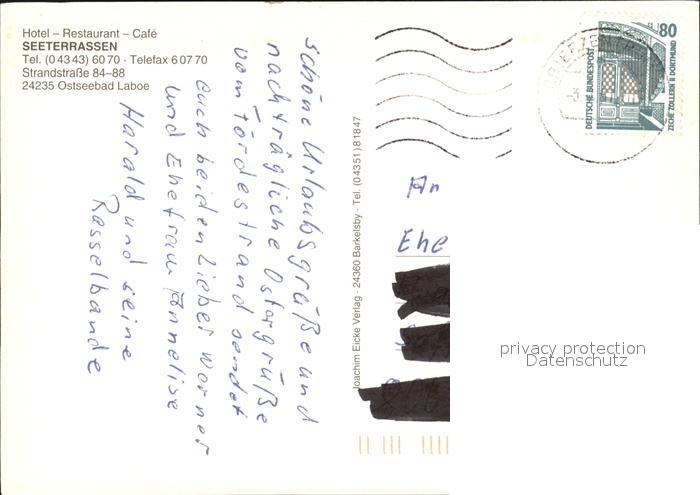 Hotel – Restaurant – Café
SEETERRASSEN
Tel. (0 43 43) 60 70 · Telefax 6 07 70
Strandstraße 84–88
24235 Ostseebad Laboe
schöne Urlaubsgrüße und
nachträgliche Ostergrüße
vom Fördestrand sendet
euch beiden lieber Werner
und Ehefrau Annelise
Harald und seine
Rasselbande
Joachim Eicke Verlag · 24360 Barkelsby · Tel. (04351) 81847
80
DEUTSCHE BUNDESPOST
ZECHE ZOLLERN II DORTMUND
An
Ehe
privacy protection
Datenschutz